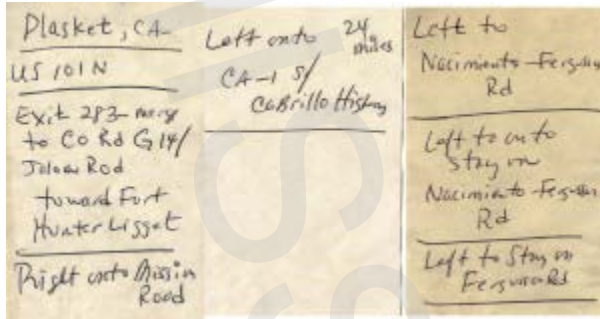 Plasket, CA
US 101 N
Exit 283 - merge
to Co Rd G14/
Jolon Rod
toward Fort
Hunter Ligget
Right onto Mission
Road
Left onto 24 miles
CA-1 S/
Cabrillo
Left to
Nacimiento-Ferguson
Rd
Left to onto
stay on
Nacimiento-Ferguson
Rd
Left to Stay on
Ferguson Rd